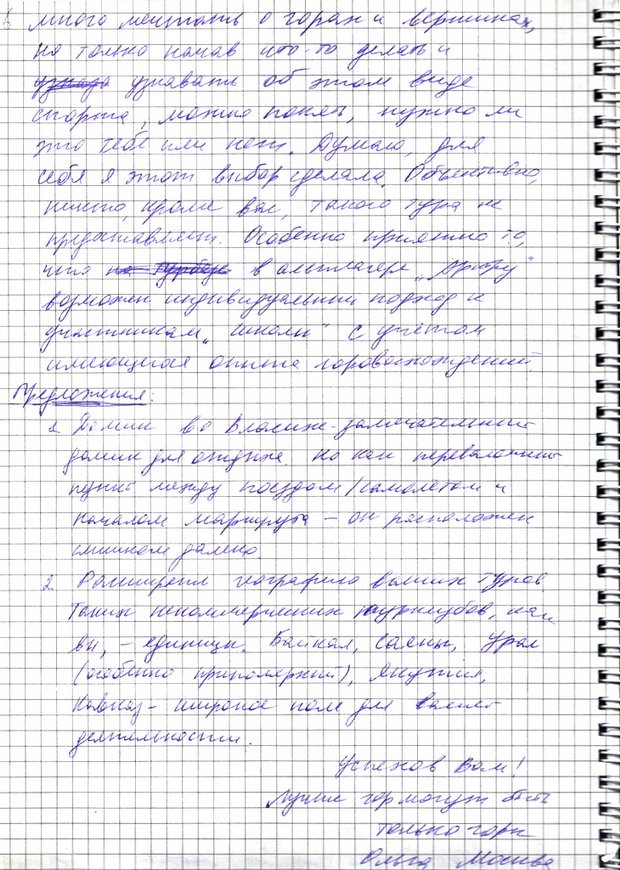 много мечтать о горах и вершинах,
но только начав что-то делать и
узнавать об этом виде
спорта, можно понять, нужно ли
это тебе или нет. Думаю, для
себя я этот выбор сделала. Объективно,
никто, кроме вас, такого тура не
предоставляет. Особенно приятно то,
чего в альплагере
возможен индивидуальный подход к
участникам „школы" с учётом
имеющегося опыта горовосхождений
Предложения:
1. Домик во Владике - замечательный
домик для отдыха. Но как перевалочный
пункт между поездом/самолётом и
началом маршрута – он расположен
слишком далеко
2. Расширять географию ваших туров.
Таких некоммерческих турклубов, как
вы, – единицы. Байкал, Саяны, Урал
(особенно приполярный), Якутия,
Кавказ – широкое поле для вашей
деятельности.
Успехов Вам!
Лучше гор могут быть
только горы
Ольга Москва